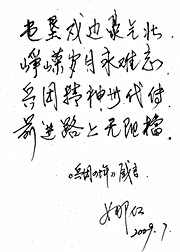 屯垦戍边豪气壮
峥嵘岁月永难忘
兵团精神世代传
前进路上无阻挡
《兵团少年》感言
2009.7.